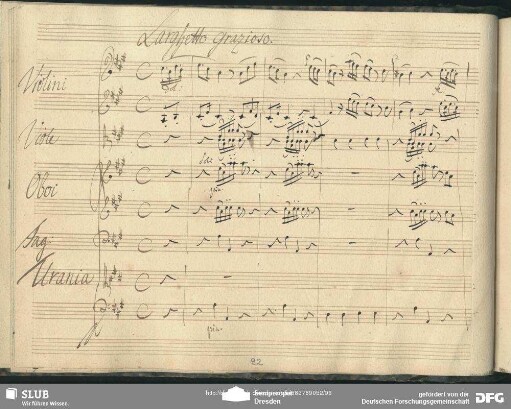 Larghetto grazioso.
Violini
Viole
Oboi
Fag:
Urania
92
SLUB
Wir führen Wissen.
Dresden
gefördert von der
Deutschen Forschungsgemeinschaft
DFG